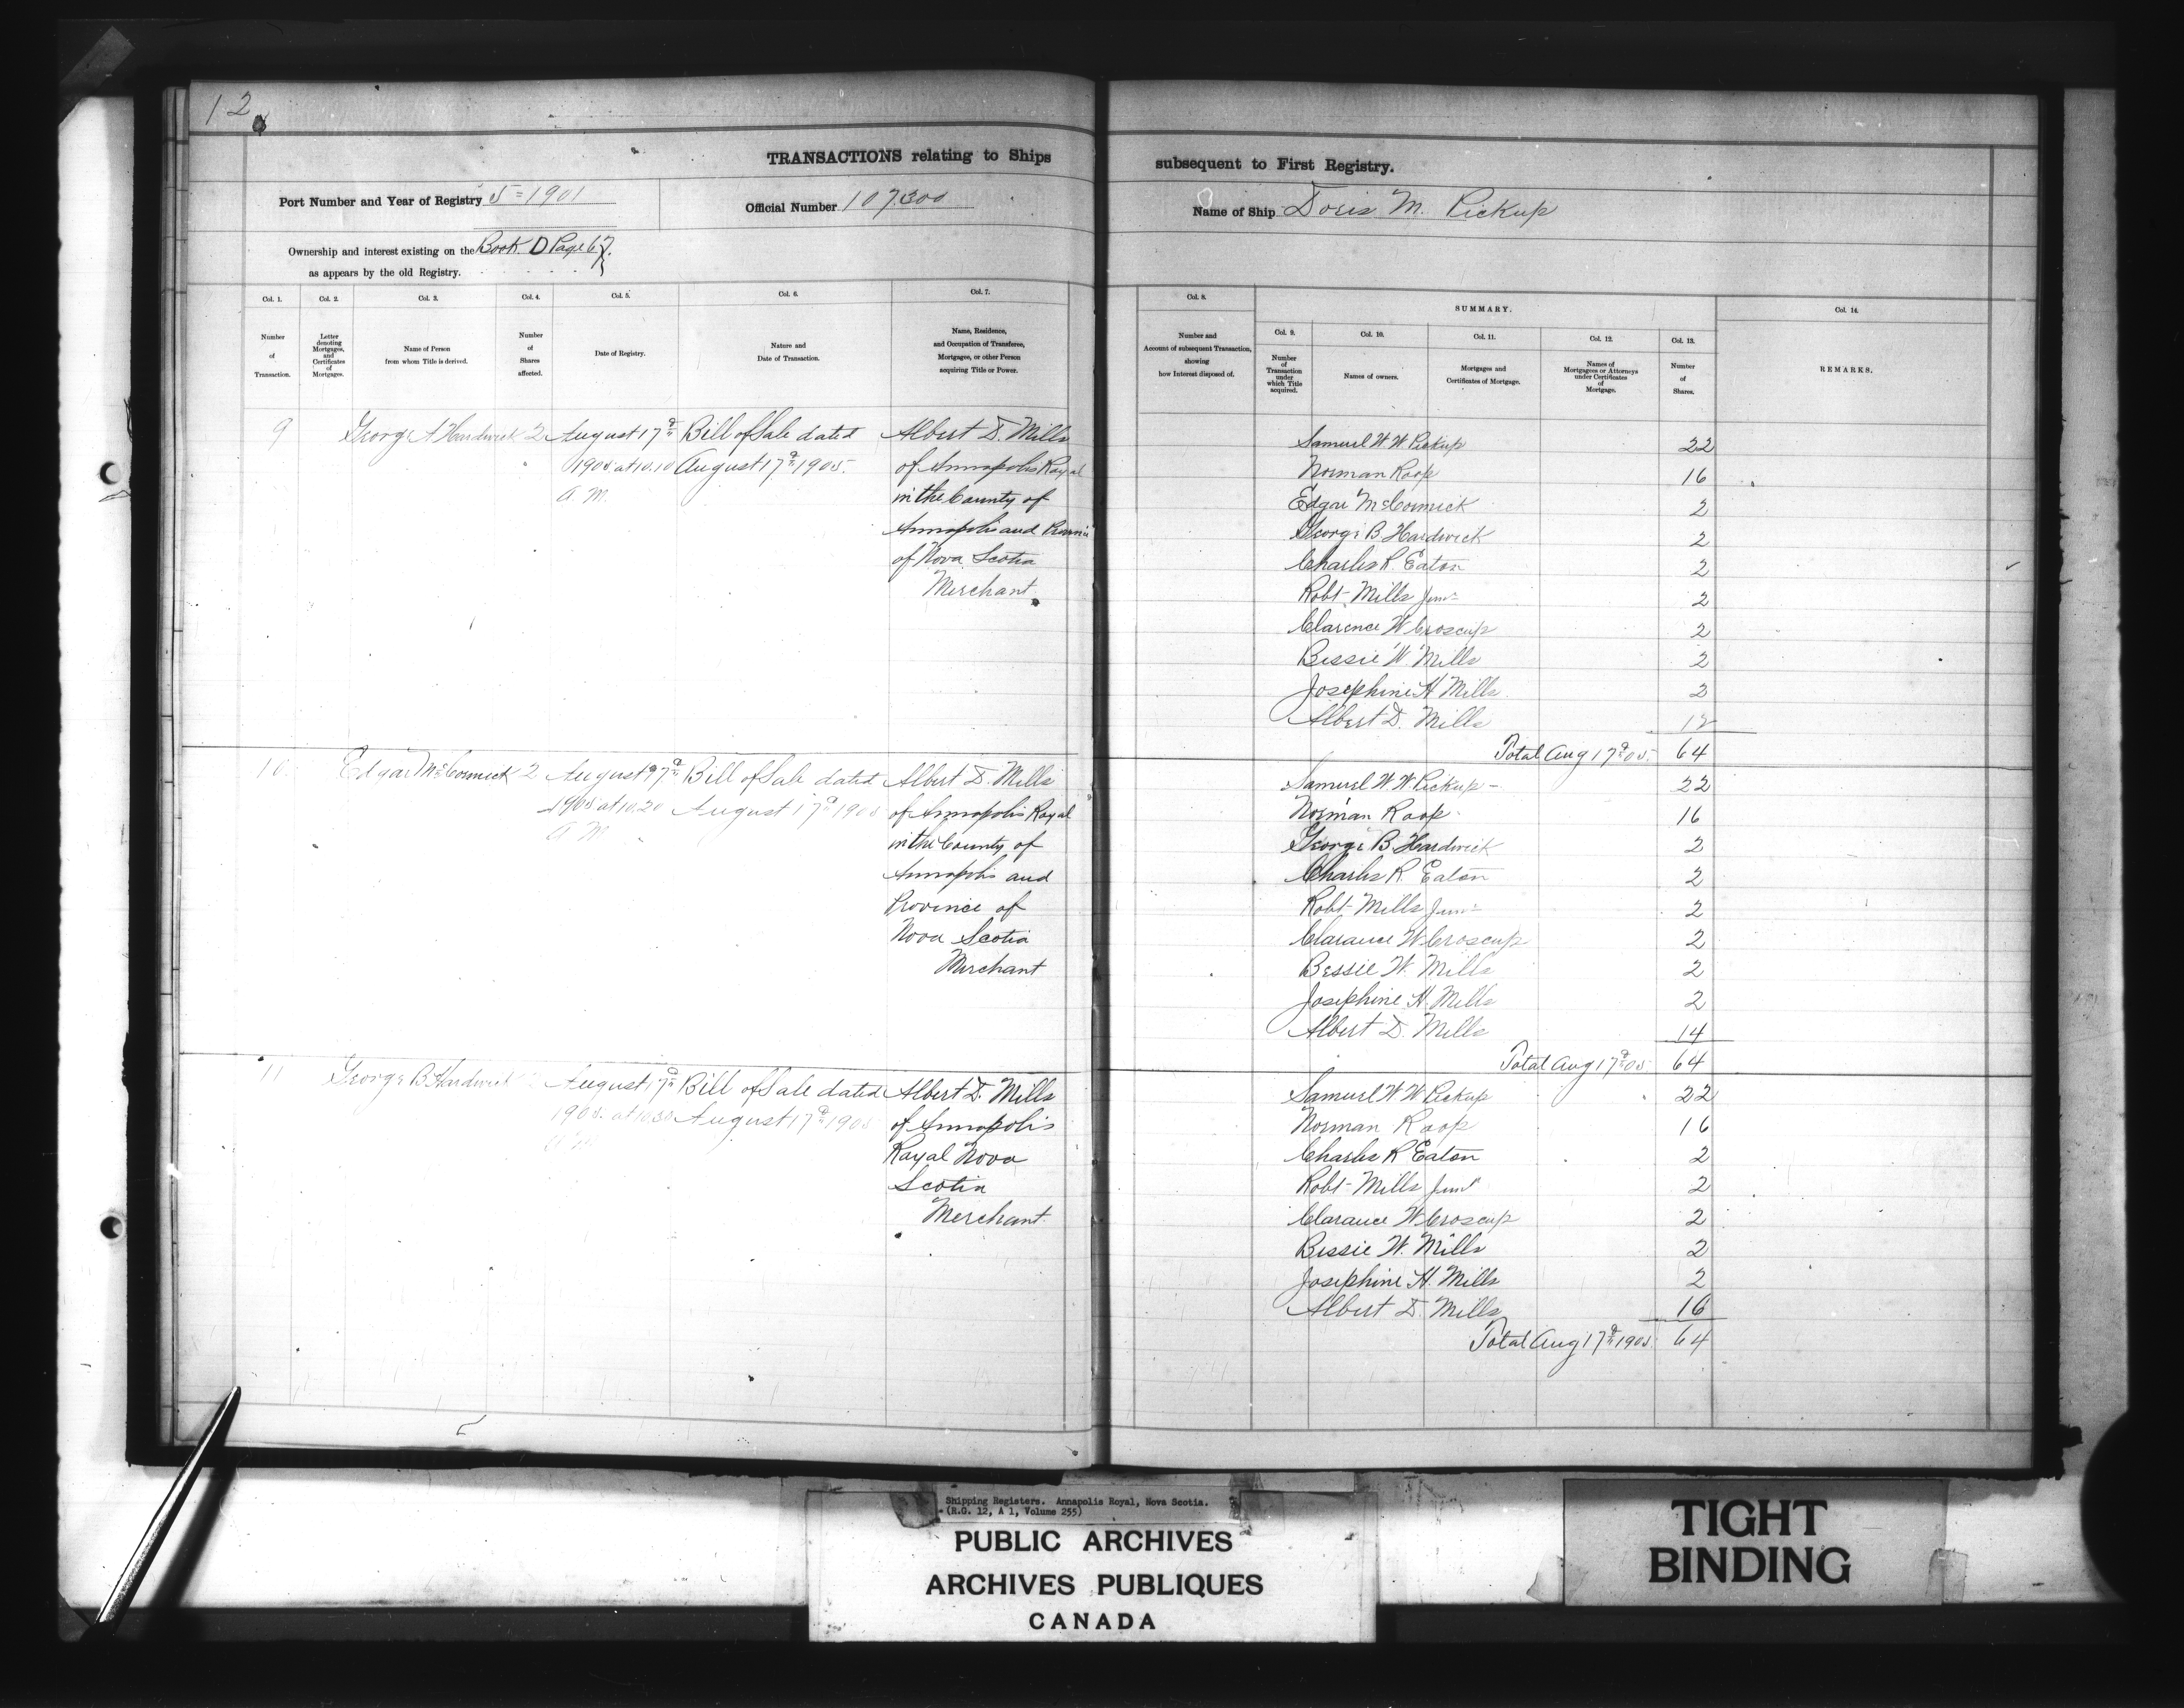 12
TRANSACTIONS relating to Ships subsequent to First Registry.
Port Number and Year of Registry 5=1901
Official Number 107300
Name of Ship Doris M. Pickup
Ownership and interest existing on the Book D Page 67
as appears by the old Registry.
Col. 1.
Number
of
Transaction.
Col. 2.
Letter
denoting
Mortgages,
and
Certificates
of
Mortgages.
Col. 3.
Name of Person
from whom Title is derived.
Col. 4.
Number
of
Shares
affected.
Col. 5.
Date of Registry.
Col. 6.
Nature and
Date of Transaction.
Col. 7.
Name, Residence,
and Occupation of Transferee,
Mortgagee, or other Person
acquiring Title or Power.
Col. 8.
Number and
Account of subsequent Transaction,
showing
how Interest disposed of.
SUMMARY.
Col. 9.
Number
of
Transaction
under
which Title
acquired.
Col. 10.
Names of owners.
Col. 11.
Mortgages and
Certificates of Mortgage.
Col. 12.
Names of
Mortgagees or Attorneys
under Certificates
of
Mortgage.
Col. 13.
Number
of
Shares.
Col. 14.
REMARKS.
9 George A Hardwick 2 August 17th Bill of Sale dated Albert D. Mills
1905 at 10.10 August 17th 1905. of Annapolis Royal
A.M. in the County of
Annapolis and Province
of Nova Scotia
Merchant
Samuel W W Pickup 22
Norman Roop 16
Edgar McCormick 2
George B. Hardwick 2
Charles R. Eaton 2
Robt Mills Junr 2
Clarence W Croscup 2
Bessie W Mills 2
Josephine H Mills 2
Albert D. Mills 12
Total Aug 17th 05. 64
10 Edgar McCormick 2 August 17th Bill of Sale dated Albert D. Mills
1905 at 10.20 August 17th 1905 of Annapolis Royal
A M in the County of
Annapolis and
Province of
Nova Scotia
Merchant
Samuel W. W. Pickup - 22
Norman Roop 16
George B. Hardwick 2
Charles R Eaton 2
Robt Mills Junr 2
Clarance W Croscup 2
Bessie W. Mills 2
Josephine H. Mills 2
Albert D. Mills 14
Total Aug 17th 05 64
11 George B Hardwick 2 August 17th Bill of Sale dated Albert D. Mills
1905. at 10.30 August 17th 1905 of Annapolis
A M Royal Nova
Scotia
Merchant
Samuel W W Pickup 22
Norman Roop 16
Charles R Eaton 2
Robt Mills Junr 2
Clarance W Croscup 2
Bessie W. Mills 2
Josephine H. Mills 2
Albert D. Mills 16
Total Aug 17th 1905. 64
Shipping Registers. Annapolis Royal, Nova Scotia.
(R.G. 12, A 1, Volume 255)
PUBLIC ARCHIVES
ARCHIVES PUBLIQUES
CANADA
TIGHT
BINDING